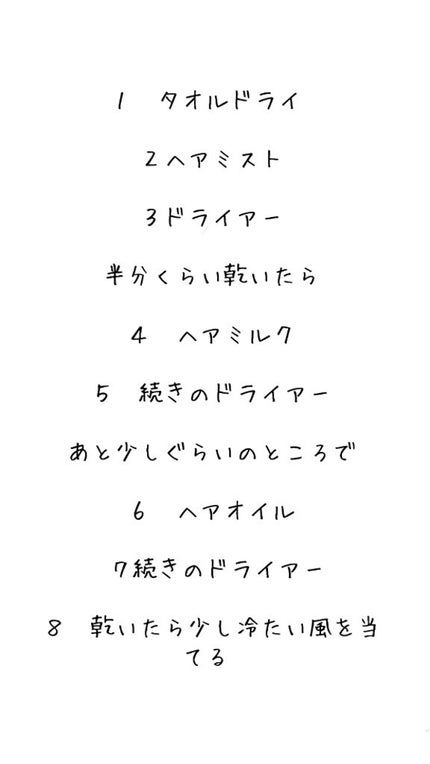 1　タオルドライ
2ヘアミスト
3ドライアー
半分くらい乾いたら
4　ヘアミルク
5　続きのドライアー
あと少しぐらいのところで
6　ヘアオイル
7続きのドライアー
8　乾いたら少し冷たい風を当
てる